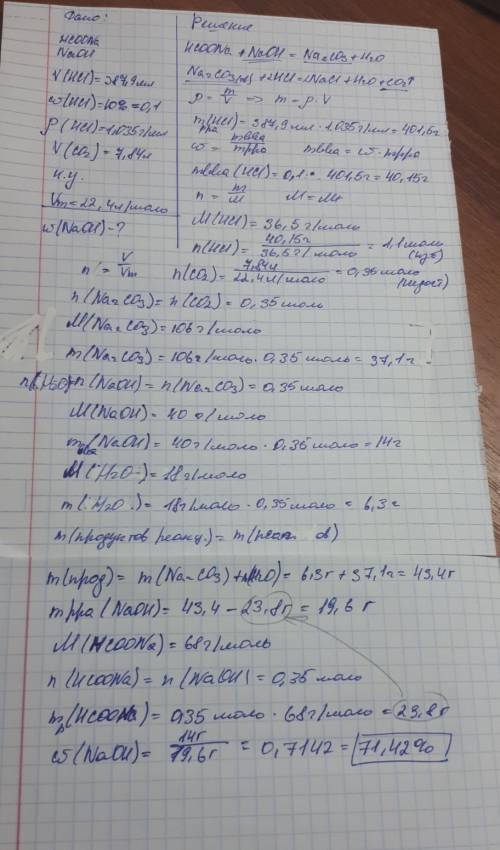 Дано:
HCOONa
NaOH
V(HCl)=387,9мл
ω(HCl)=10%=0,1
ρ(HCl)=1,035г/мл
V(CO₂)=7,84л
н.у.
Vm=22,4л/моль
ω(NaOH)-?
Решение
HCOONa + NaOH = Na₂CO₃ + H₂O
Na₂CO₃ +2HCl=2NaCl+H₂O+CO₂↑
ρ = m/V => m=ρ·V
m(HCl)=387,9мл·1,035г/мл=401,5г
ω = mвва/mрра mвва=ω·mрра
mвва(HCl)=0,1·401,5г=40,15г
n = m/M M=Mr
M(HCl)=36,5г/моль
n(HCl)= 40,15г/36,5г/моль = 1,1моль (изб)
n = V/Vm n(CO₂)= 7,84л/22,4л/моль = 0,35моль
n(Na₂CO₃)=n(CO₂)=0,35моль
M(Na₂CO₃)=106г/моль
m(Na₂CO₃)=106г/моль·0,35моль=37,1г
n(H₂O)=n(NaOH)=n(Na₂CO₃)=0,35моль
M(NaOH)=40г/моль
mвва(NaOH)=40г/моль·0,35моль=14г
M(H₂O)=18г/моль
m(H₂O)=18г/моль·0,35моль=6,3г
m(продуктов реакц.)=m( в)
m(прод)=m(Na₂CO₃)+m(H₂O)=6,3г+37,1г=43,4г
mрра(NaOH)=43,4-23,8г=19,6г
M(HCOONa)=68г/моль
n(HCOONa)=n(NaOH)=0,35моль
m(HCOONa)=0,35моль·68г/моль=23,8г
ω(NaOH)= 14г/19,6г = 0,7142=71,42%